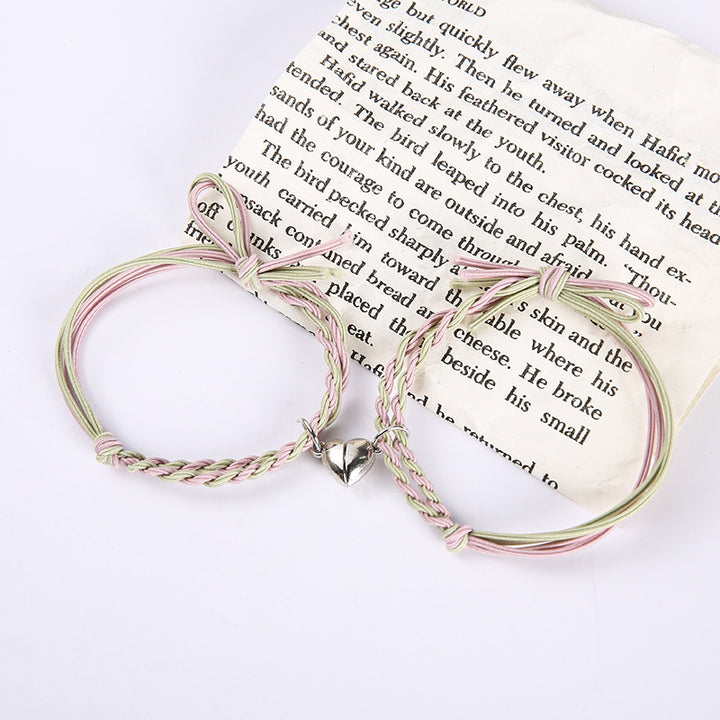 WORLD
ge but quickly flew away when Hafid mo
even slightly. Then he turned and looked at the
chest again. His feathered visitor cocked its head
and stared back at the youth.
Hafid walked slowly to the chest, his hand ex-
tended. The bird leaped into his palm. "Thou-
sands of your kind are outside and afraid you
had the courage to come through
The bird pecked sharply a 's skin and the
youth carried him toward the able where his
sack contained bread and cheese. He broke
off chunks placed the beside his small
friend eat.
Hafid nd he returned to